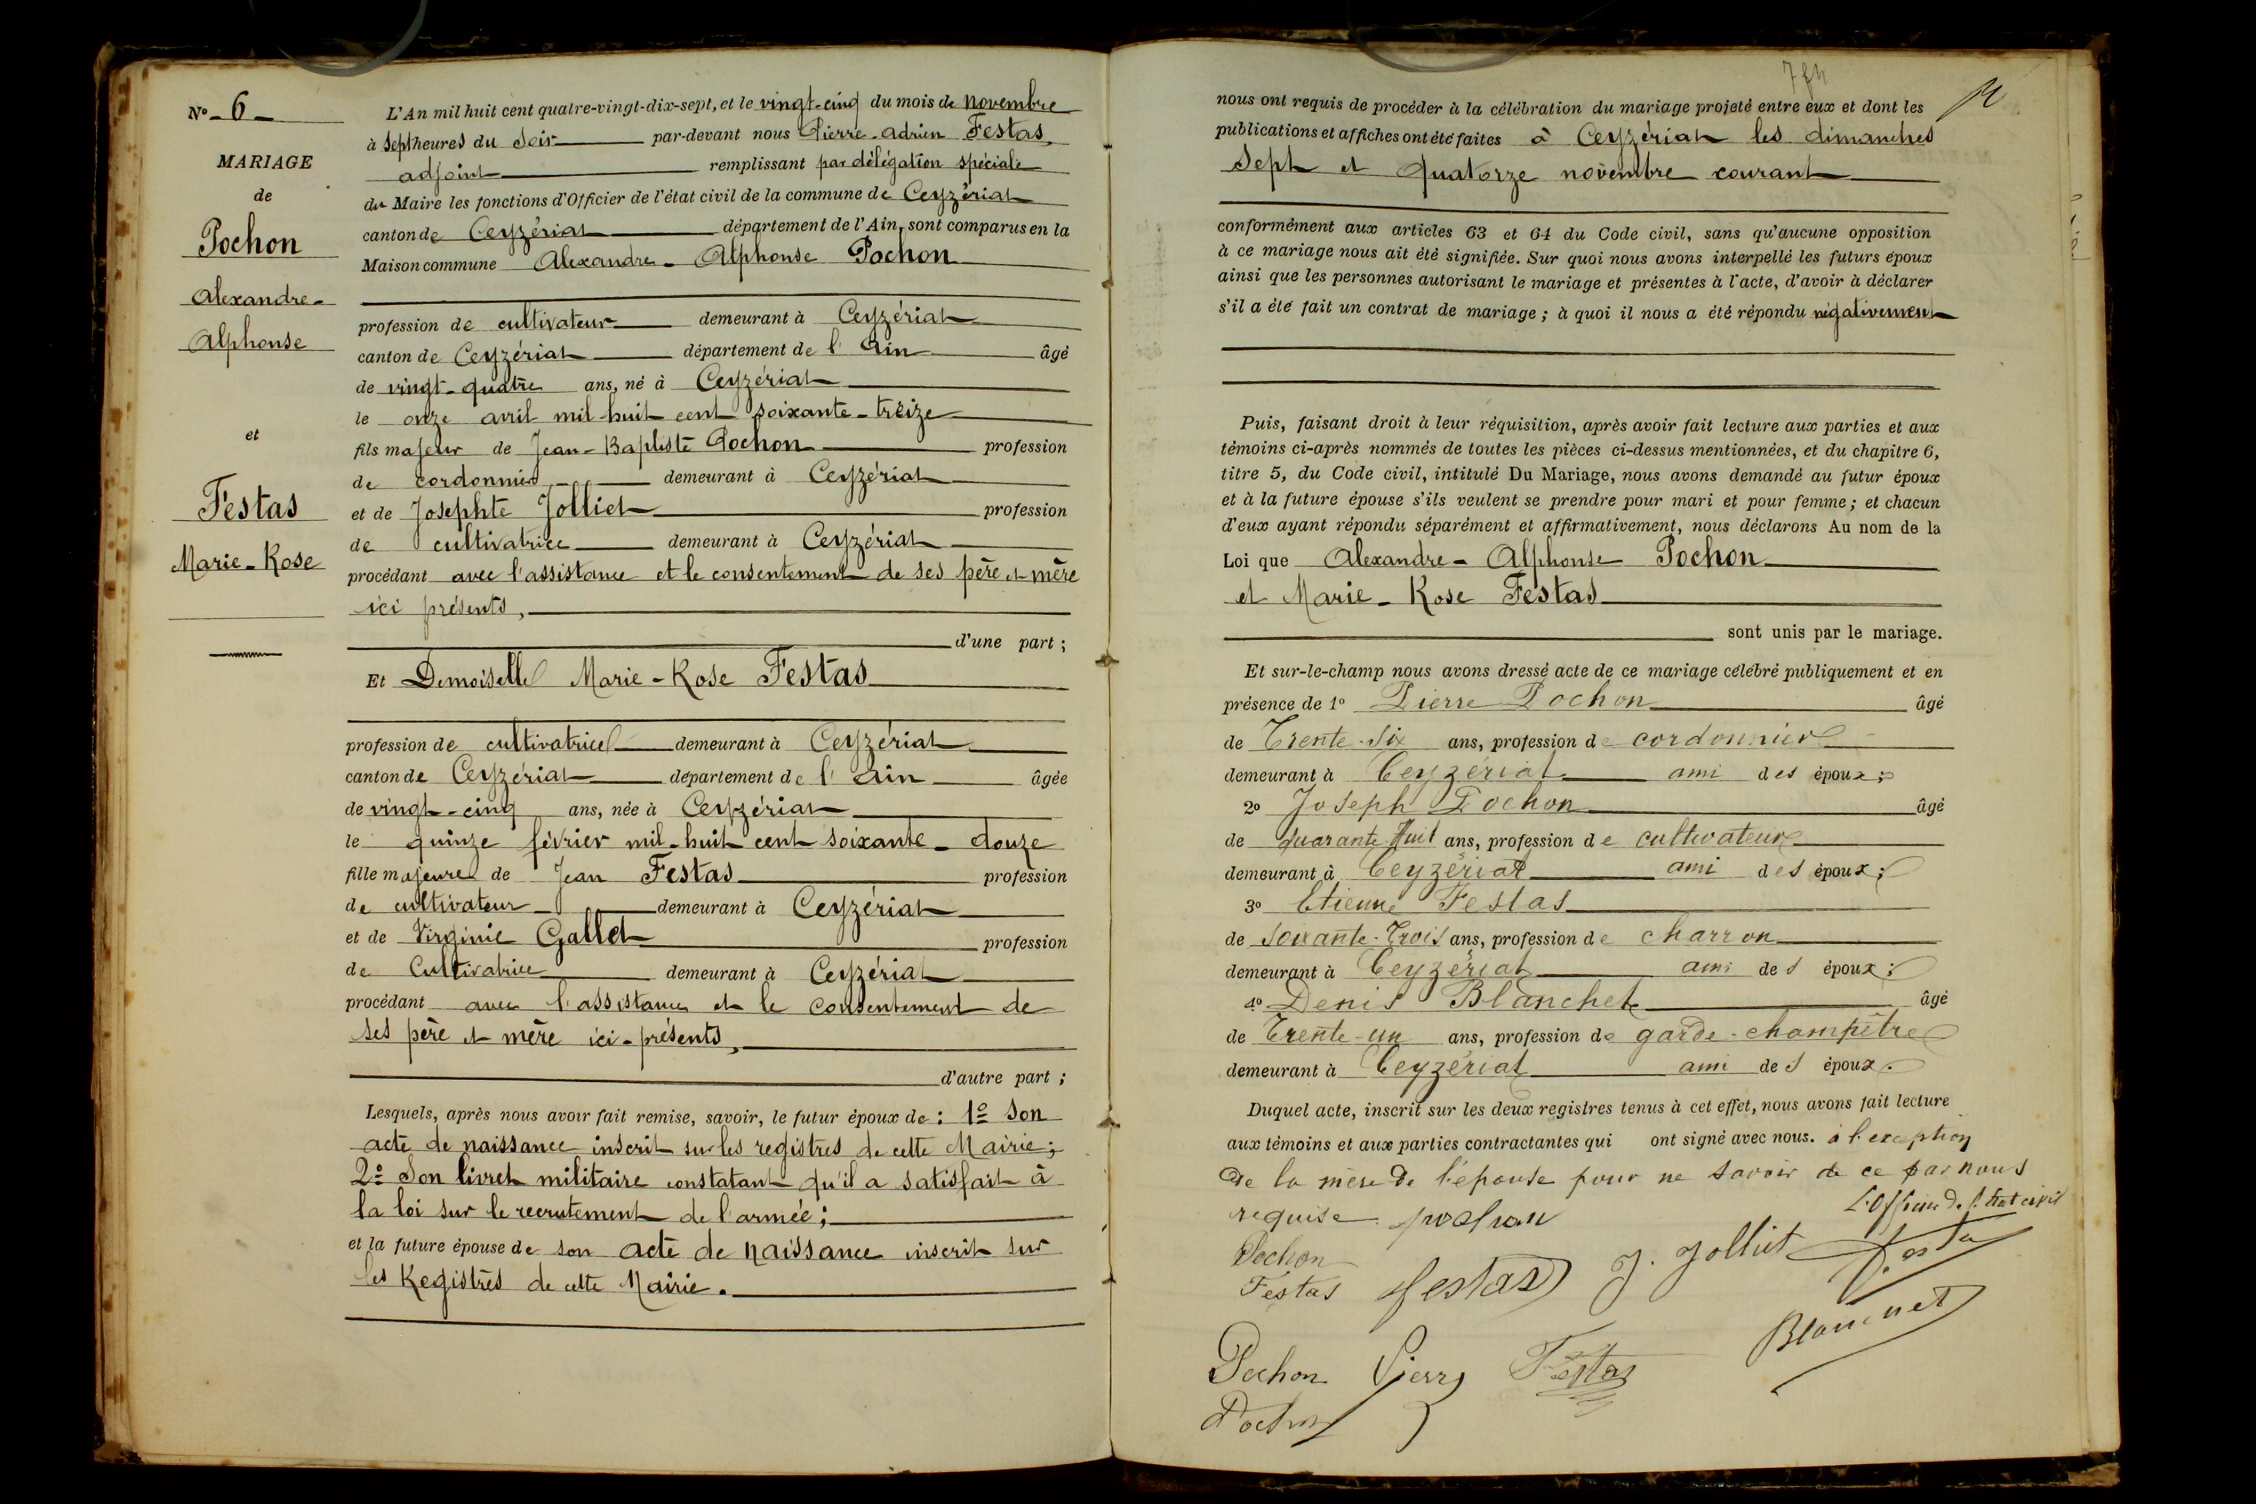 Nº 6
MARIAGE
de
Pochon
Alexandre-
Alphonse
et
Festas
Marie-Rose
L'An mil huit cent quatre-vingt-dix-sept, et le vingt-cinq du mois de novembre
à sept heures du soir par-devant nous Pierre-Adrien Festas,
adjoint remplissant par délégation spéciale
du Maire les fonctions d'Officier de l'état civil de la commune de Ceyzériat
canton de Ceyzériat département de l'Ain, sont comparus en la
Maison commune Alexandre-Alphonse Pochon
profession de cultivateur demeurant à Ceyzériat
canton de Ceyzériat département de l'Ain âgé
de vingt-quatre ans, né à Ceyzériat
le onze avril mil-huit cent soixante-treize
fils majeur de Jean-Baptiste Pochon profession
de cordonnier demeurant à Ceyzériat
et de Josephte Jolliet profession
de cultivatrice demeurant à Ceyzériat
procédant avec l'assistance et le consentement de ses père et mère
ici présents,
d'une part ;
Et Demoiselle Marie-Rose Festas
profession de cultivatrice demeurant à Ceyzériat
canton de Ceyzériat département de l'Ain âgée
de vingt-cinq ans, née à Ceyzériat
le quinze février mil-huit cent soixante-douze
fille majeure de Jean Festas profession
de cultivateur demeurant à Ceyzériat
et de Virginie Gallet profession
de Cultivatrice demeurant à Ceyzériat
procédant avec l'assistance et le consentement de
ses père et mère ici-présents,
d'autre part ;
Lesquels, après nous avoir fait remise, savoir, le futur époux de : 1º Son
acte de naissance inscrit sur les registres de cette Mairie;
2º Son livret militaire constatant qu'il a satisfait à
la loi sur le recrutement de l'armée;
et la future épouse de son acte de naissance inscrit sur
les Registres de cette Mairie.
nous ont requis de procéder à la célébration du mariage projeté entre eux et dont les
publications et affiches ont été faites à Ceyzériat les dimanches
Sept et quatorze novembre courant
conformément aux articles 63 et 64 du Code civil, sans qu'aucune opposition
à ce mariage nous ait été signifiée. Sur quoi nous avons interpellé les futurs époux
ainsi que les personnes autorisant le mariage et présentes à l'acte, d'avoir à déclarer
s'il a été fait un contrat de mariage ; à quoi il nous a été répondu négativement
Puis, faisant droit à leur réquisition, après avoir fait lecture aux parties et aux
témoins ci-après nommés de toutes les pièces ci-dessus mentionnées, et du chapitre 6,
titre 5, du Code civil, intitulé Du Mariage, nous avons demandé au futur époux
et à la future épouse s'ils veulent se prendre pour mari et pour femme ; et chacun
d'eux ayant répondu séparément et affirmativement, nous déclarons Au nom de la
Loi que Alexandre-Alphonse Pochon
et Marie-Rose Festas
sont unis par le mariage.
Et sur-le-champ nous avons dressé acte de ce mariage célébré publiquement et en
présence de 1º Pierre Pochon âgé
de Trente-six ans, profession de cordonnier
demeurant à Ceyzériat ami des époux ;
2º Joseph Pochon âgé
de quarante-huit ans, profession de cultivateur
demeurant à Ceyzériat ami des époux ;
3º Etienne Festas
de soixante-Trois ans, profession de charron
demeurant à Ceyzériat ami des époux ;
4º Denis Blanchet âgé
de Trente-un ans, profession de garde-champêtre
demeurant à Ceyzériat ami des époux.
Duquel acte, inscrit sur les deux registres tenus à cet effet, nous avons fait lecture
aux témoins et aux parties contractantes qui ont signé avec nous. à l'exception
de la mère de l'épouse pour ne savoir de ce par nous
requise. pochon L'Officier de l'état civil
Pochon
Festas Festas J. Jolliet Festas
Blanchet
Pochon Pierre Festas
Pochon